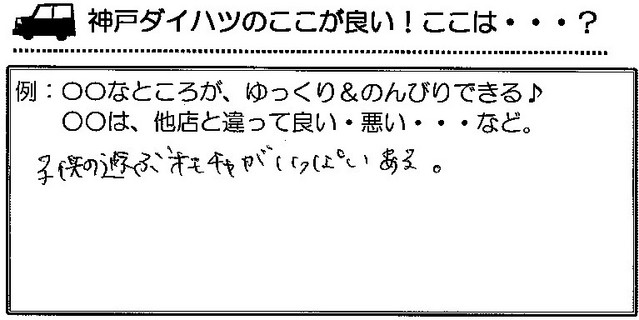 神戸ダイハツのここが良い！ここは・・・？
例：〇〇なところが、ゆっくり＆のんびりできる♪
〇〇は、他店と違って良い・悪い・・・など。
子供の遊ぶオモチャがいっぱいある。